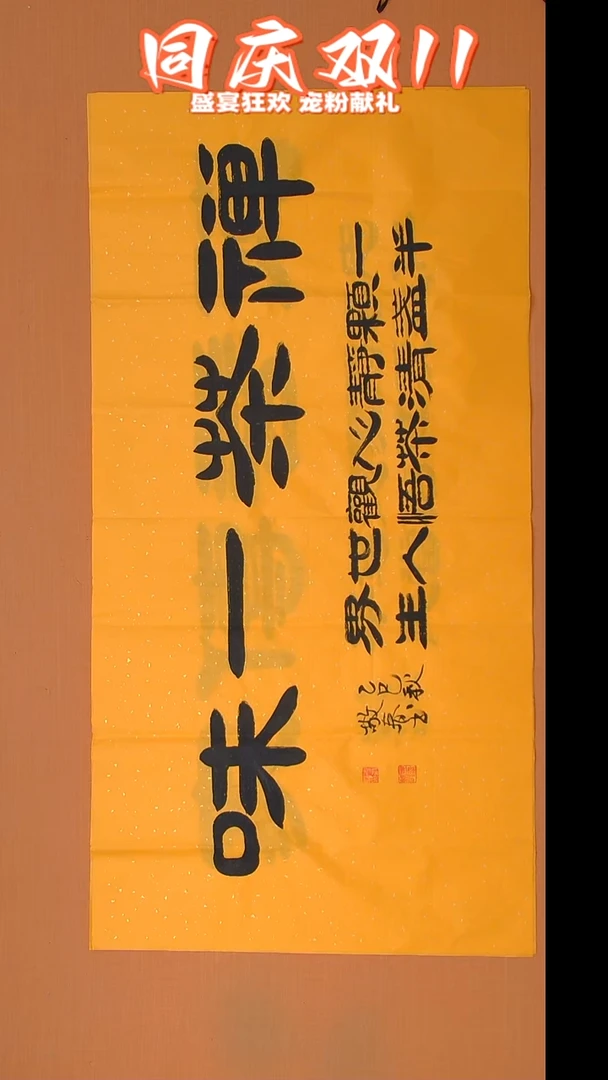 同庆双11
盛宴狂欢 宠粉献礼
禪茶一味
一顆靜心觀世界
半盏清茶悟人生
乙巳秋